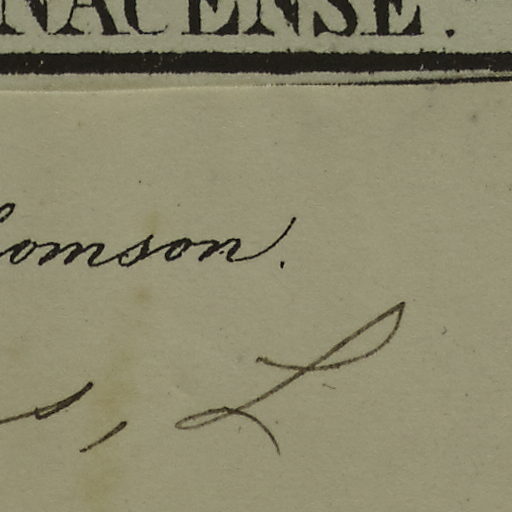 NACENSE.
homson.
s, L